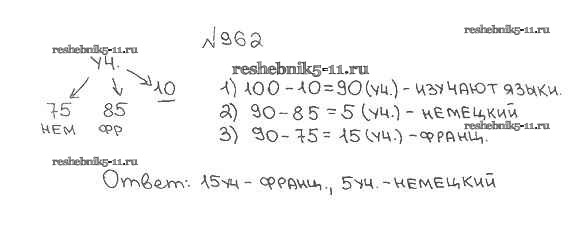 №962
reshebnik5-11.ru
reshebnik5-11.ru
уч.
reshebnik5-11.ru
75 85 10
нем фр
1) 100-10=90(уч.) - изучают языки.
2) 90-85=5(уч.) - немецкий
reshebnik5-11.ru
3) 90-75=15(уч.) - франц.
reshebnik5-11.ru
Ответ: 15уч - франц., 5уч. - немецкий